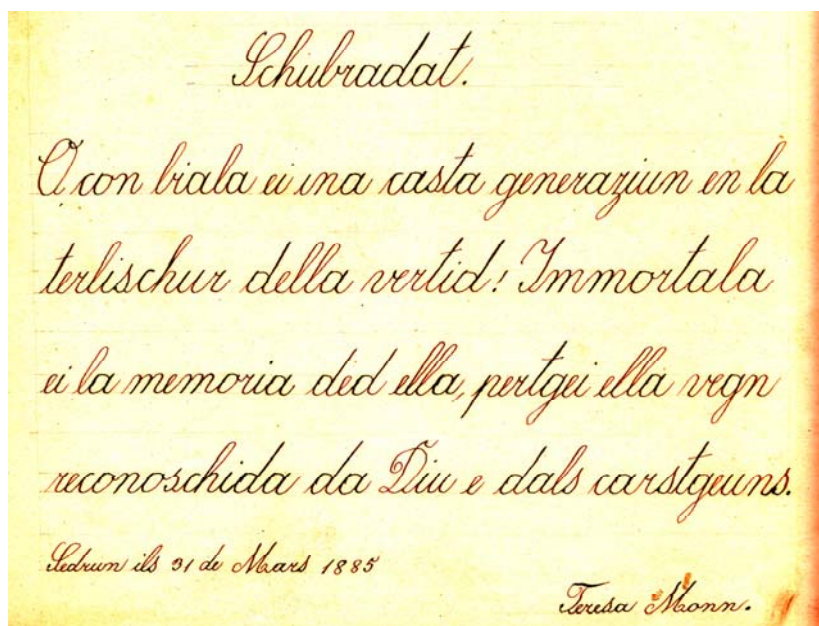 Schubradat.
O con biala ei ina casta generaziun en la
terlischur della vertid! Immortala
ei la memoria ded ella, pertgei ella vegn
reconoschida da Diu e dals carstgeuns.
Sedrun ils 31 de Mars 1885
Teresa Monn.